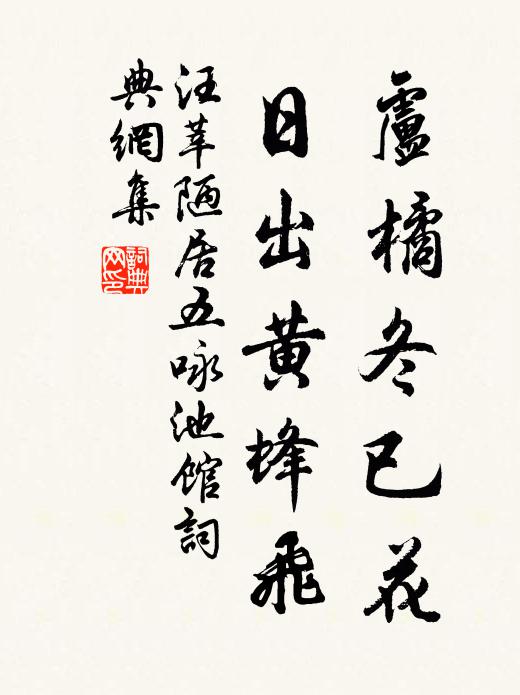 盧橘冬已花
日出黃蜂飛
汪莘陋居五咏池館詞
典網集
詞典
网印